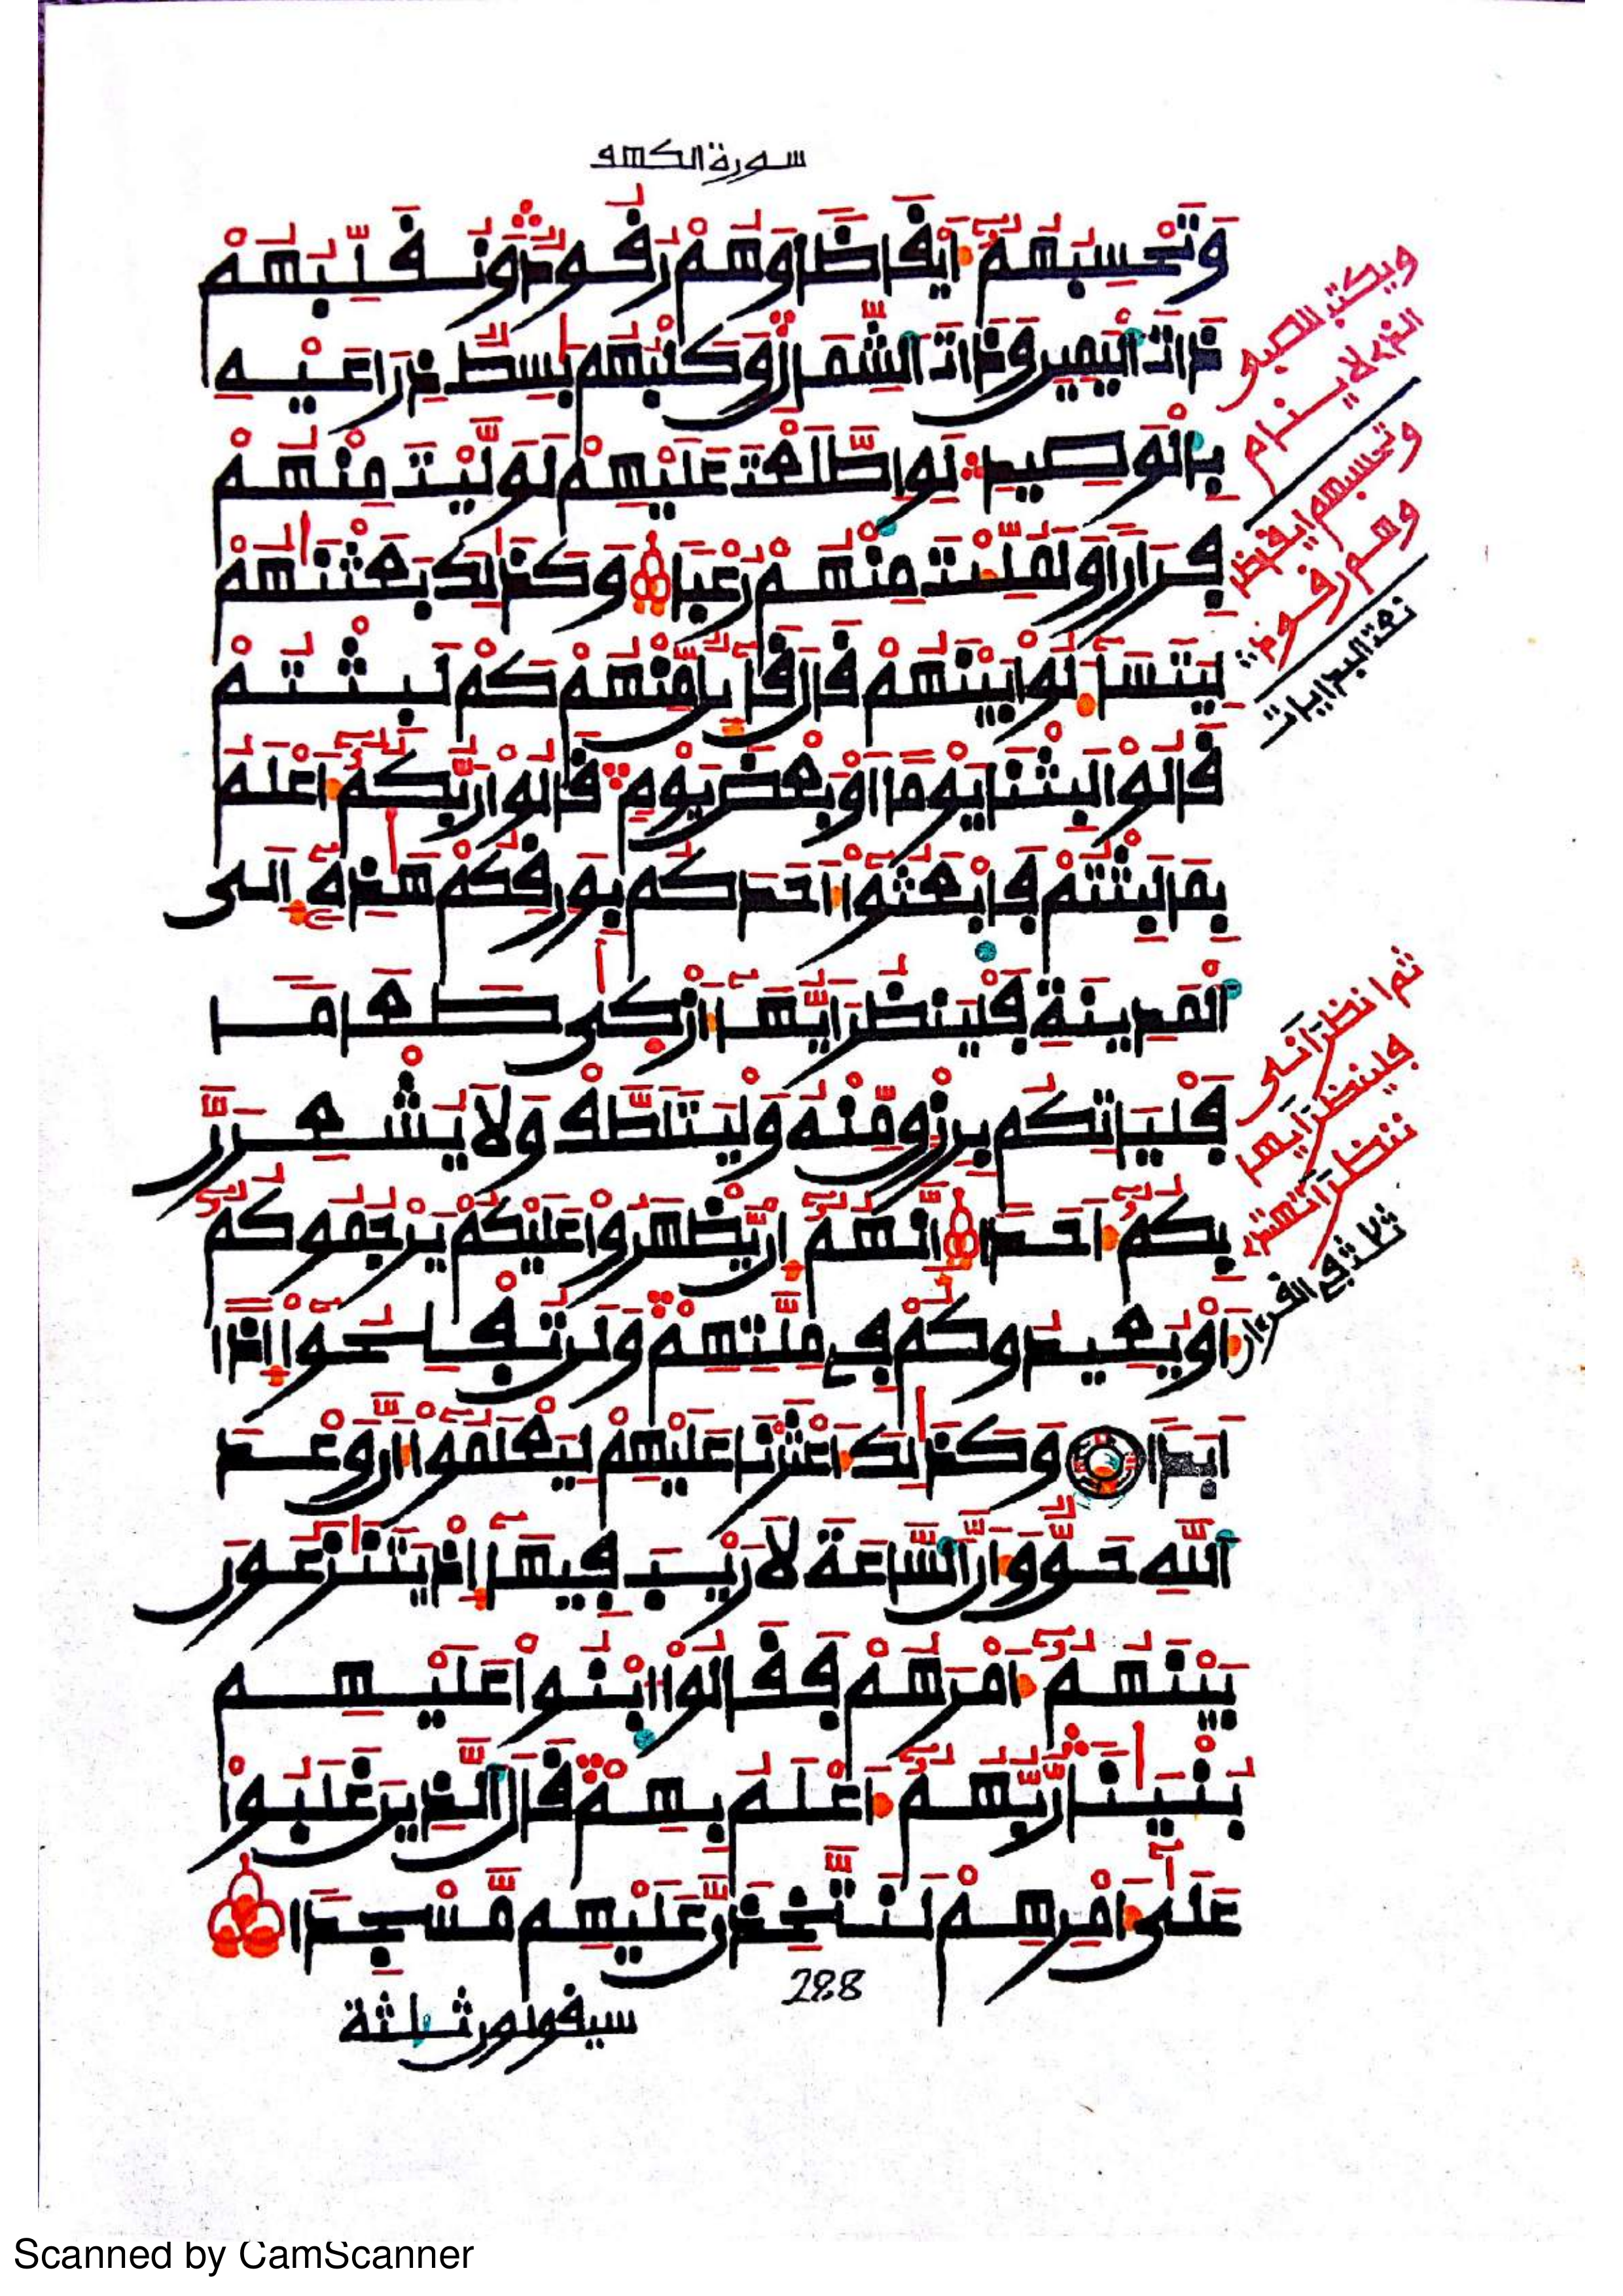 سورة الكهف
وَتَحْسِبُهُمُۥٓ أَيْقَاظًا وَهُمْ رُقُودٌ وَنُقَلِّبُهُمْ
ذَاتَ اَلْيَمِينِ وَذَاتَ اَلشِّمَالِ وَكَلْبُهُم بَٰسِطٌ ذِرَاعَيْهِ
بِالْوَصِيدِ لَوِ اِطَّلَعْتَ عَلَيْهِمْ لَوَلَّيْتَ مِنْهُمْ
فِرَارًا وَلَمُلِّئْتَ مِنْهُمْ رُعْبًا وَكَذَٰلِكَ بَعَثْنَٰهُمْ
لِيَتَسَآءَلُوا بَيْنَهُمْ قَالَ قَآئِلٌ مِّنْهُمْ كَمْ لَبِثْتُمْ
قَالُوا لَبِثْنَا يَوْمًا أَوْ بَعْضَ يَوْمٍ قَالُوا رَبُّكُمُۥٓ أَعْلَمُ
بِمَا لَبِثْتُمْ فَابْعَثُوٓا أَحَدَكُم بِوَرِقِكُمْ هَٰذِهِۦٓ إِلَى
اَلْمَدِينَةِ فَلْيَنظُرْ أَيُّهَآ أَزْكَىٰ طَعَامًا
فَلْيَاتِكُم بِرِزْقٍ مِّنْهُ وَلْيَتَلَطَّفْ وَلَا يُشْعِرَنَّ
بِكُمُۥٓ أَحَدًا إِنَّهُمُۥٓ إِنْ يَّظْهَرُوا عَلَيْكُمْ يَرْجُمُوكُمُۥٓ
أَوْ يُعِيدُوكُمْ فِي مِلَّتِهِمْ وَلَن تُفْلِحُوٓا إِذًا
أَبَدًا وَكَذَٰلِكَ أَعْثَرْنَا عَلَيْهِمْ لِيَعْلَمُوٓا أَنَّ وَعْدَ
اَللَّهِ حَقٌّ وَأَنَّ اَلسَّاعَةَ لَا رَيْبَ فِيهَآ إِذْ يَتَنَٰزَعُونَ
بَيْنَهُمُۥٓ أَمْرَهُمْ فَقَالُوا اُبْنُوا عَلَيْهِم
بُنْيَٰنًا رَّبُّهُمُۥٓ أَعْلَمُ بِهِمْ قَالَ اَلَّذِينَ غَلَبُوا
عَلَىٰٓ أَمْرِهِمْ لَنَتَّخِذَنَّ عَلَيْهِم مَّسْجِدًا
288
سيقولون ثلثة
ويكتب للصبي
الذي لا ينام
وتحسبهم ايقاظا
وهم رقود
نعت البدايات
ثم انظر انى
فلينظر ايها
ننظر اتهتدي
ثلاث في القرءان
Scanned by CamScanner